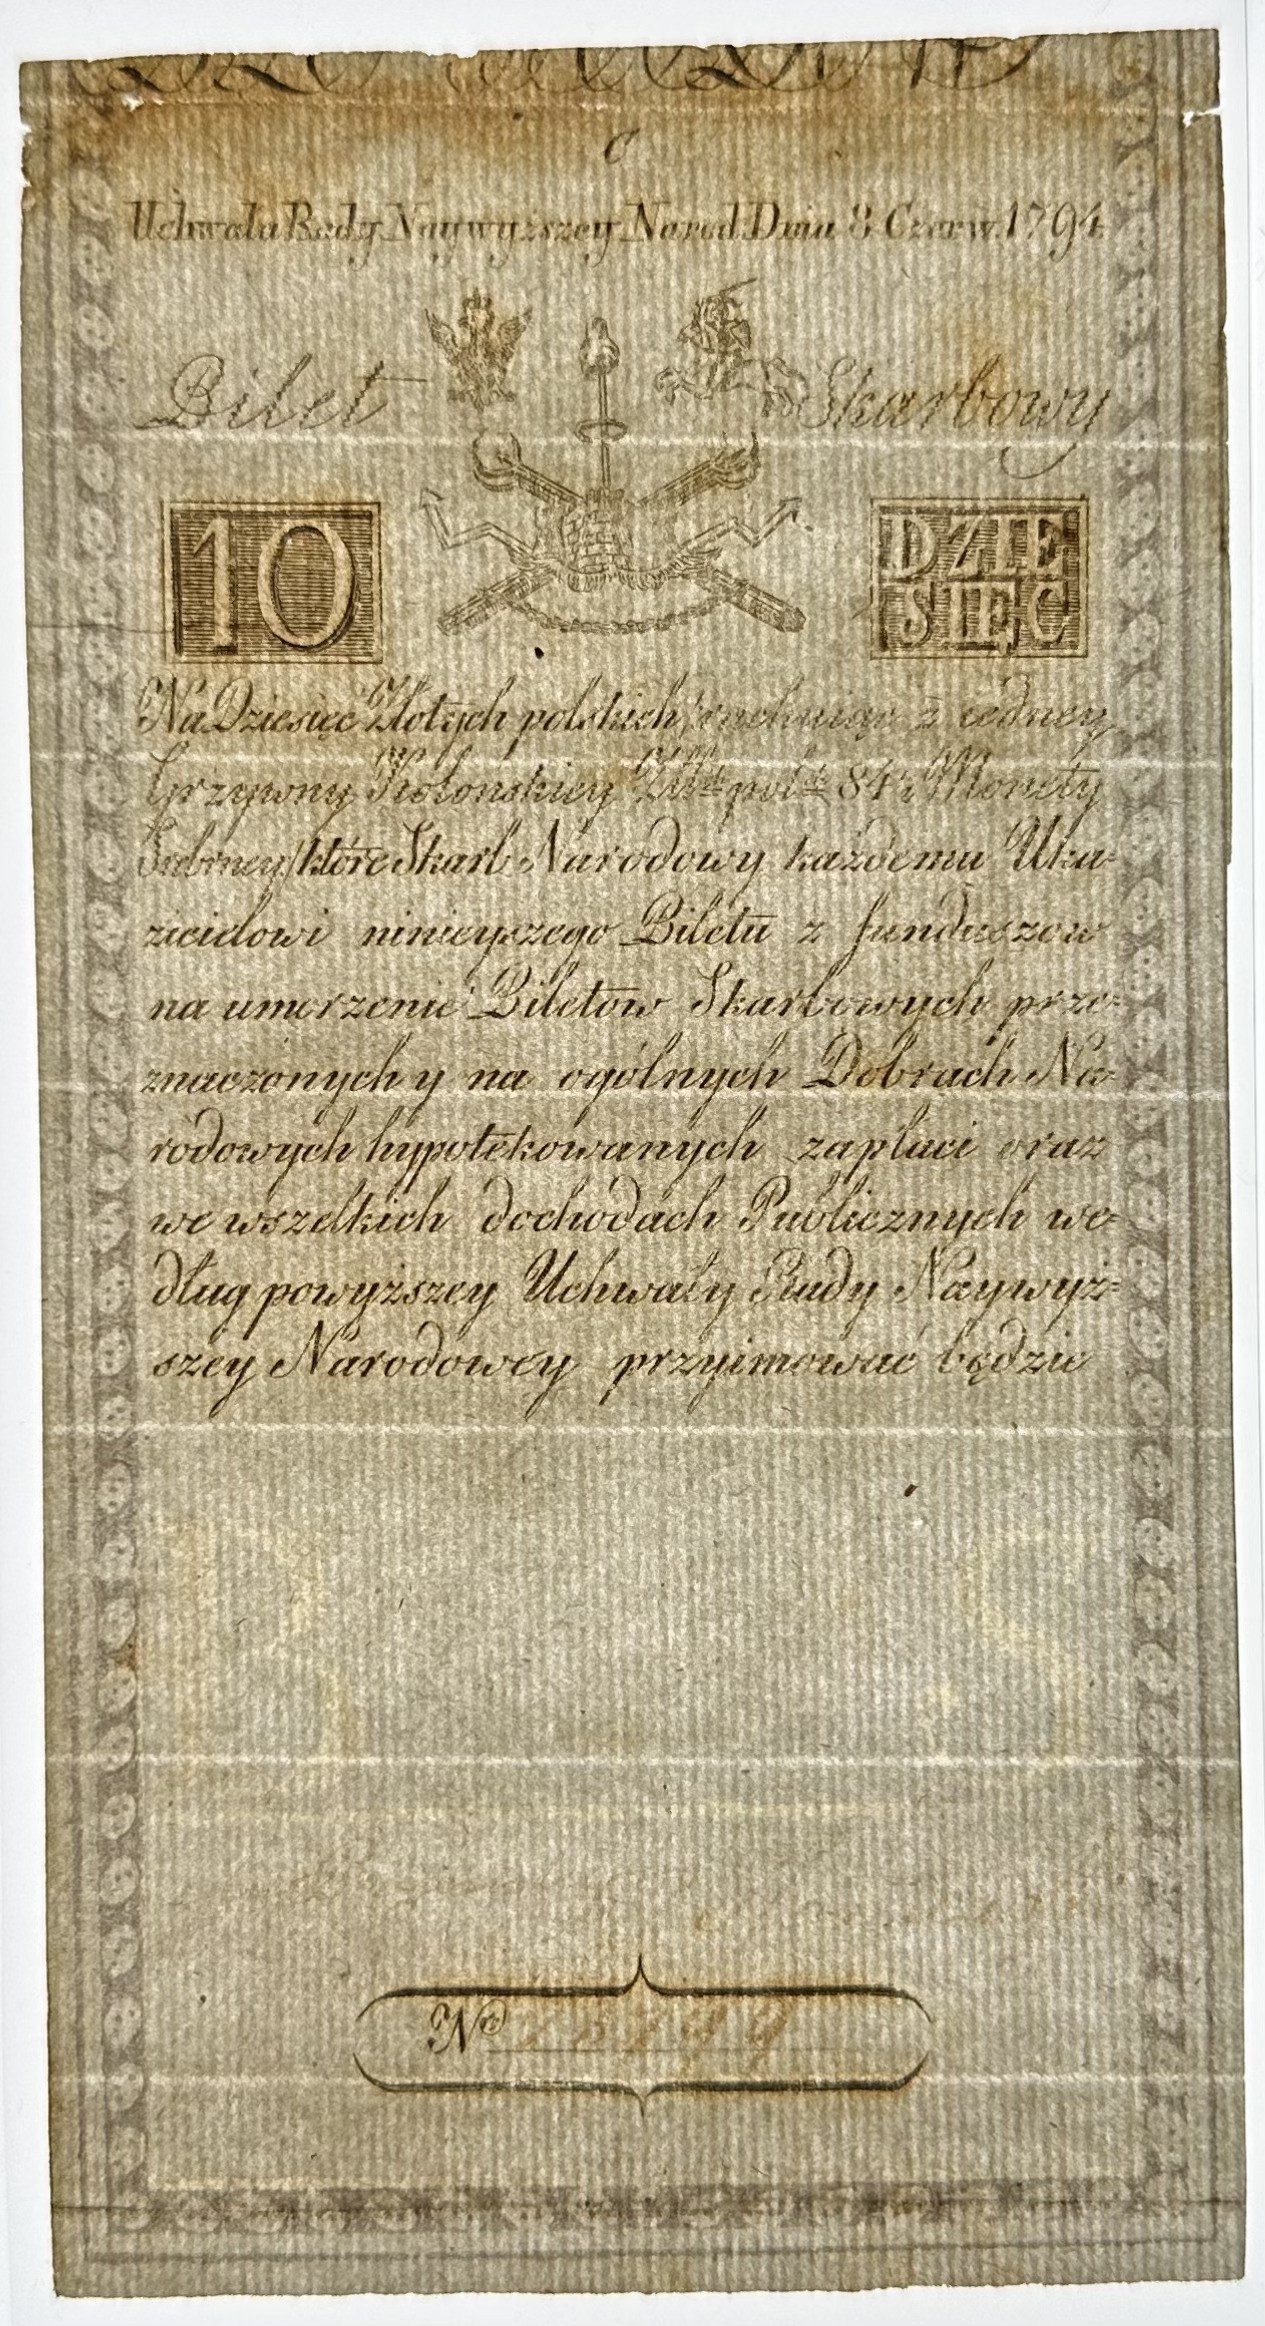 C
Uchwała Rady Naywyższey Narod. Dnia 8 Czerw. 1794
Bilet Skarbowy
10 DZIE
SIĘĆ
Na Dziesięć Złotych polskich /rachuiąc z iedney
Grzywny Kolońskiey Złłt. pol. 84½ Monety
Srebrney/ które Skarb Narodowy każdemu Uka=
zicielowi ninieyszego Biletu z funduszow
na umorzenie Biletow Skarbowych prze=
znaczonych y na ogólnych Dobrach Na=
rodowych hypotekowanych zapłaci oraz
we wszelkich dochodach Publicznych we=
dług powyższey Uchwały Rady Naywyż=
szey Narodowey przyimować będzie
Nro